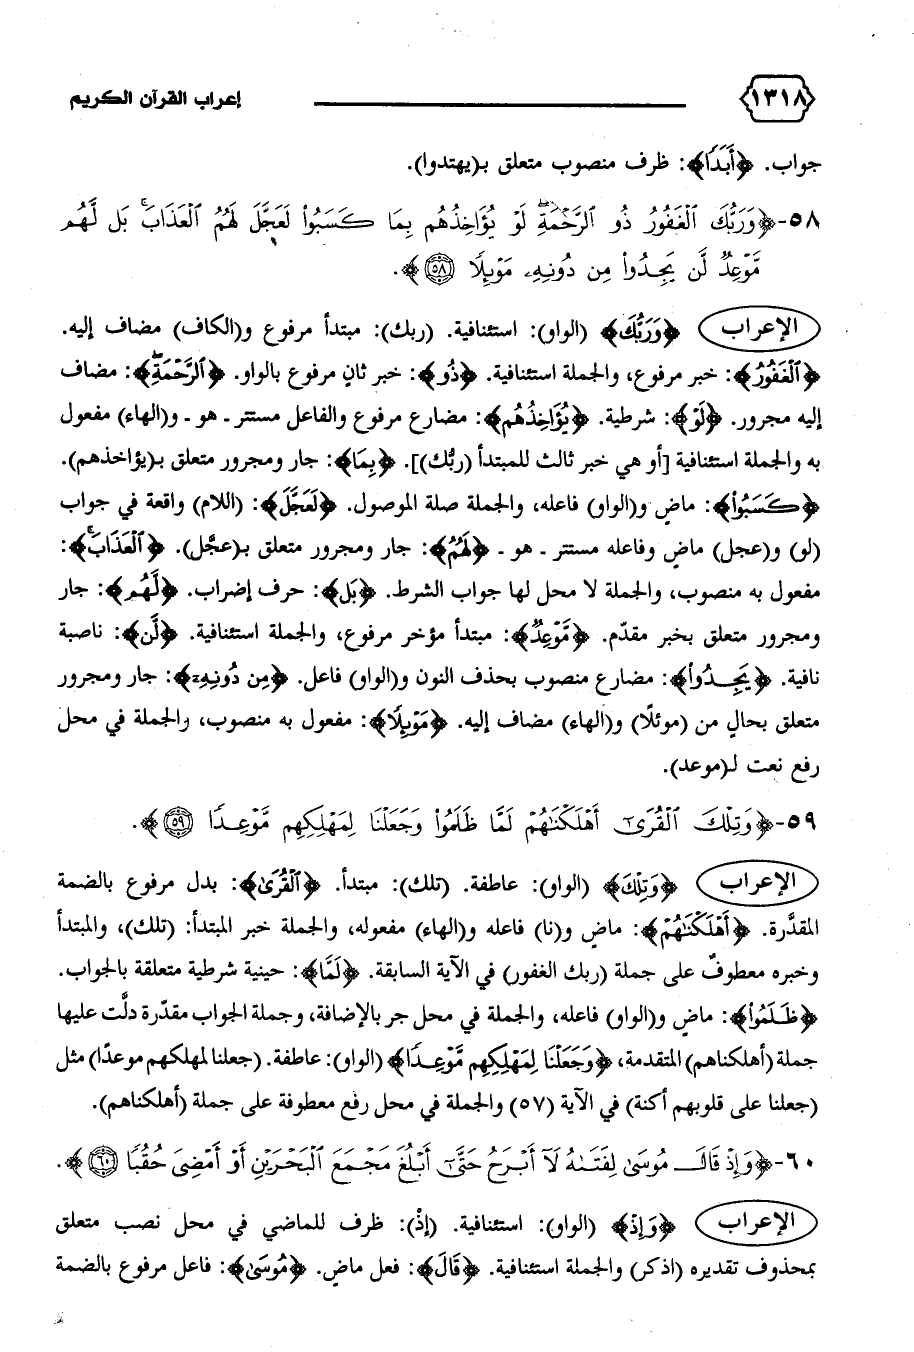 إعراب القرآن الكريم ١٣١٨
جواب. ﴿أَبَدًا﴾: ظرف منصوب متعلق بـ(يهتدوا).
٥٨- ﴿وَرَبُّكَ ٱلْغَفُورُ ذُو ٱلرَّحْمَةِ ۖ لَوْ يُؤَاخِذُهُم بِمَا كَسَبُوا۟ لَعَجَّلَ لَهُمُ ٱلْعَذَابَ ۚ بَل لَّهُم
مَّوْعِدٌ لَّن يَجِدُوا۟ مِن دُونِهِۦ مَوْئِلًا ٥٨﴾.
الإعراب ﴿وَرَبُّكَ﴾ (الواو): استئنافية. (ربك): مبتدأ مرفوع و(الكاف) مضاف إليه.
﴿ٱلْغَفُورُ﴾: خبر مرفوع، والجملة استئنافية. ﴿ذُو﴾: خبر ثانٍ مرفوع بالواو. ﴿ٱلرَّحْمَةِ ۖ﴾: مضاف
إليه مجرور. ﴿لَوْ﴾: شرطية. ﴿يُؤَاخِذُهُم﴾: مضارع مرفوع والفاعل مستتر ـ هو ـ و(الهاء) مفعول
به والجملة استئنافية [أو هي خبر ثالث للمبتدأ (ربُّك)]. ﴿بِمَا﴾: جار ومجرور متعلق بـ(يؤاخذهم).
﴿كَسَبُوا۟﴾: ماضٍ و(الواو) فاعله، والجملة صلة الموصول. ﴿لَعَجَّلَ﴾: (اللام) واقعة في جواب
(لو) و(عجل) ماضٍ وفاعله مستتر ـ هو ـ ﴿لَهُمُ﴾: جار ومجرور متعلق بـ(عجَّل). ﴿ٱلْعَذَابَ ۚ﴾:
مفعول به منصوب، والجملة لا محل لها جواب الشرط. ﴿بَل﴾: حرف إضراب. ﴿لَّهُم﴾: جار
ومجرور متعلق بخبر مقدّم. ﴿مَّوْعِدٌ﴾: مبتدأ مؤخر مرفوع، والجملة استئنافية. ﴿لَّن﴾: ناصبة
نافية. ﴿يَجِدُوا۟﴾: مضارع منصوب بحذف النون و(الواو) فاعل. ﴿مِن دُونِهِۦ﴾: جار ومجرور
متعلق بحالٍ من (موئلًا) و(الهاء) مضاف إليه. ﴿مَوْئِلًا﴾: مفعول به منصوب، والجملة في محل
رفع نعت لـ(موعد).
٥٩- ﴿وَتِلْكَ ٱلْقُرَىٰٓ أَهْلَكْنَٰهُمْ لَمَّا ظَلَمُوا۟ وَجَعَلْنَا لِمَهْلِكِهِم مَّوْعِدًا ٥٩﴾.
الإعراب ﴿وَتِلْكَ﴾ (الواو): عاطفة. (تلك): مبتدأ. ﴿ٱلْقُرَىٰ﴾: بدل مرفوع بالضمة
المقدَّرة. ﴿أَهْلَكْنَٰهُمْ﴾: ماضٍ و(نا) فاعله و(الهاء) مفعوله، والجملة خبر المبتدأ: (تلك)، والمبتدأ
وخبره معطوفٌ على جملة (ربك الغفور) في الآية السابقة. ﴿لَمَّا﴾: حينية شرطية متعلقة بالجواب.
﴿ظَلَمُوا۟﴾: ماضٍ و(الواو) فاعله، والجملة في محل جر بالإضافة، وجملة الجواب مقدّرة دلَّت عليها
جملة (أهلكناهم) المتقدمة، ﴿وَجَعَلْنَا لِمَهْلِكِهِم مَّوْعِدًا﴾ (الواو): عاطفة. (جعلنا لمهلكهم موعدًا) مثل
(جعلنا على قلوبهم أكنة) في الآية (٥٧) والجملة في محل رفع معطوفة على جملة (أهلكناهم).
٦٠- ﴿وَإِذْ قَالَ مُوسَىٰ لِفَتَىٰهُ لَآ أَبْرَحُ حَتَّىٰٓ أَبْلُغَ مَجْمَعَ ٱلْبَحْرَيْنِ أَوْ أَمْضِىَ حُقُبًا ٦٠﴾.
الإعراب ﴿وَإِذْ﴾ (الواو): استئنافية. (إذْ): ظرف للماضي في محل نصب متعلق
بمحذوف تقديره (اذكر) والجملة استئنافية. ﴿قَالَ﴾: فعل ماضٍ. ﴿مُوسَىٰ﴾: فاعل مرفوع بالضمة